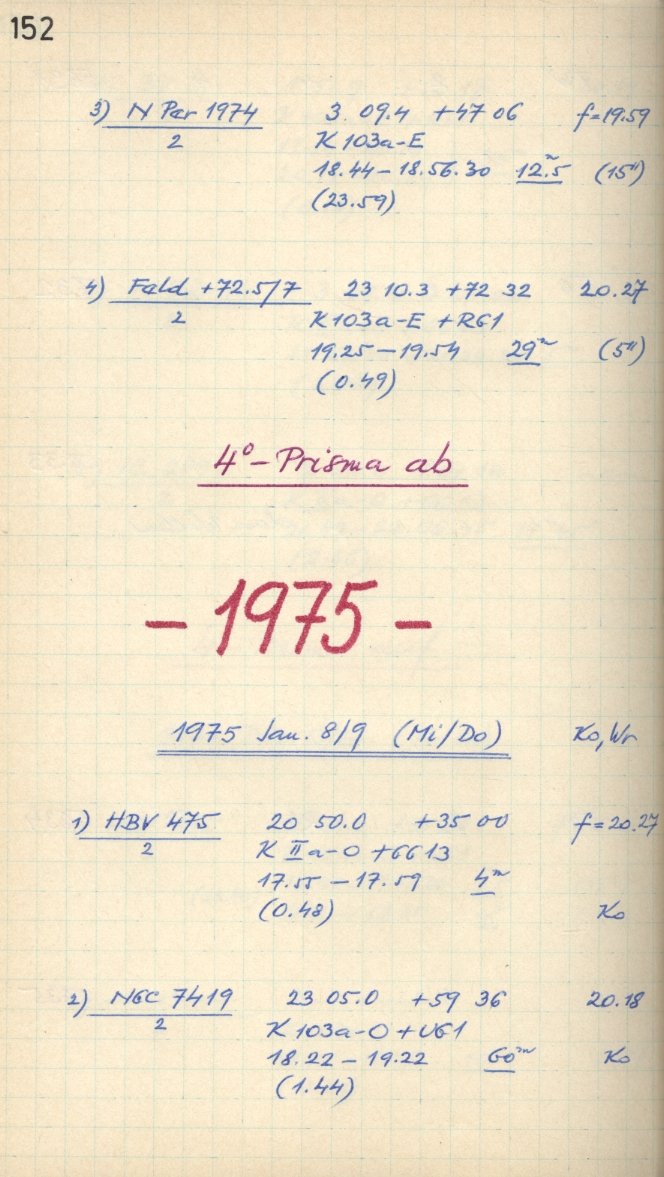 152
3) N Per 1974 3 09.4 +47 06 f=19.59
2 K 103a-E
18.44 – 18.56.30 12.ᵐ5 (15")
(23.59)
4) Feld +72.5/7 23 10.3 +72 32 20.27
2 K 103a-E + RG1
19.25 – 19.54 29ᵐ (5")
(0.49)
4° - Prisma ab
– 1975 –
1975 Jan. 8/9 (Mi/Do) Ko, Wr
1) HBV 475 20 50.0 +35 00 f=20.27
2 K IIa-O + GG13
17.55 – 17.59 4ᵐ
(0.48) Ko
2) NGC 7419 23 05.0 +59 36 20.18
2 K 103a-O + UG1
18.22 – 19.22 60ᵐ Ko
(1.44)